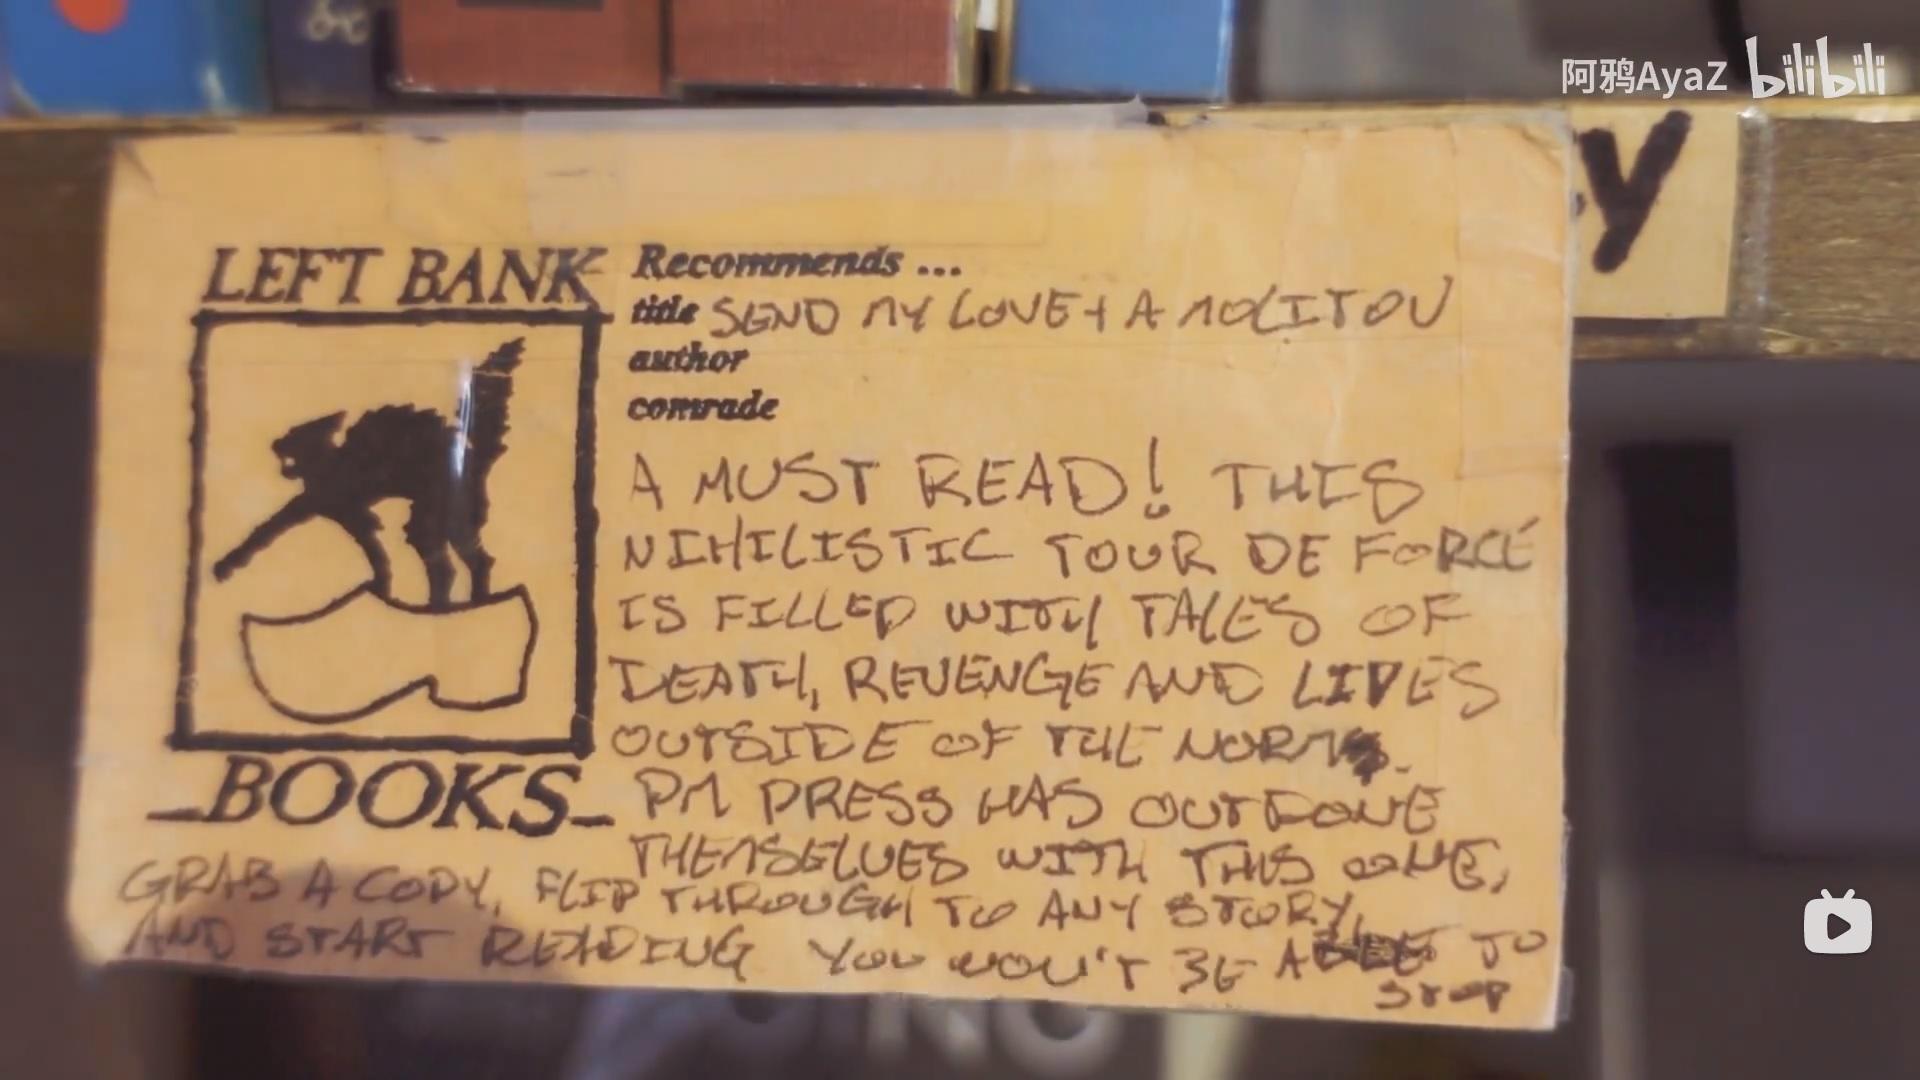 阿鸦AyaZ bilibili
y
LEFT BANK
BOOKS
Recommends ...
title SEND MY LOVE + A MOLITOV
author
comrade
A MUST READ! THIS
NIHILISTIC TOUR DE FORCE
IS FILLED WITH TALES OF
DEATH, REVENGE AND LIVES
OUTSIDE OF THE NORM.
PM PRESS HAS OUTDONE
THEMSELVES WITH THIS ONE,
GRAB A COPY, FLIP THROUGH TO ANY STORY,
AND START READING YOU WON'T BE ABLE TO
STOP